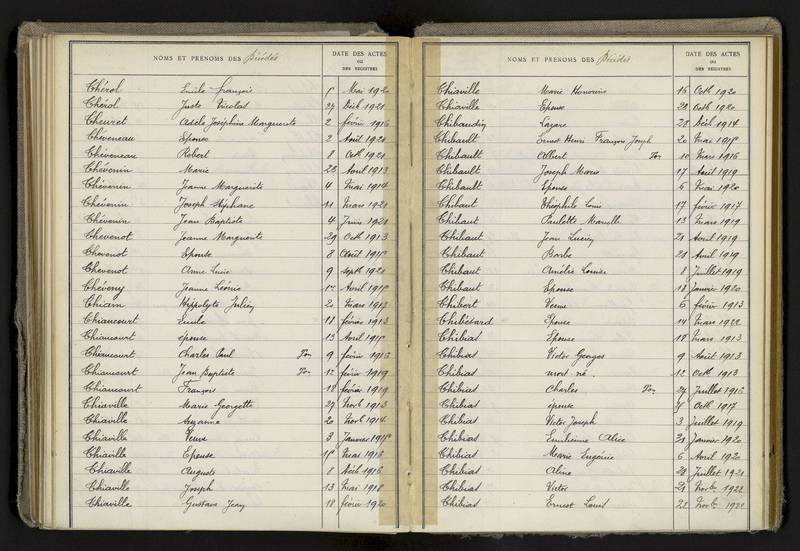 NOMS ET PRENOMS DES Décédés DATE DES ACTES
OU
DES REGISTRES
Chérol Emile François Mai 1920
Chérol Juste Nicolas 27 Déch 1921
Cheuret Adèle Joséphine Marguerite 2 février 1916
Chéveneau Epouse 2 Août 1920
Chéveneau Robert 8 Octb 1920
Chévenin Marie 23 Avril 1913
Chévenin Jeanne Marguerite 4 Mai 1914
Chévenin Joseph Stéphane 11 Mars 1921
Chévenin Jean Baptiste 4 Juin 1921
Chevenot Jeanne Marguerite 29 Octb 1913
Chevenot Epouse 8 Août
Chevenot Anne Lucie 9 Septb 1920
Chéveny Jeanne Léonie Avril
Chiam Hippolyte Julien 20 Mars 1913
Chiancourt Emile 11 février 1913
Chiancourt épouse 13 Avril
Chiancourt Charles Paul Ton 9 février 1916
Chiancourt Jean Baptiste Ton 12 février 1919
Chiancourt François 18 février 1919
Chiaville Marie Georgette 27 Novb 1913
Chiaville Suzanne 20 Novb 1914
Chiaville Veuve 3 Janvier
Chiaville Epouse Mai 1916
Chiaville Auguste 8 Déch 1916
Chiaville Joseph 13 Mai 1918
Chiaville Gustave Jean 18 février 1920
NOMS ET PRENOMS DES Décédés DATE DES ACTES
OU
DES REGISTRES
Chiaville Marie Honorine 16 Octb 1920
Chiaville Epouse 28 Octb 1920
Chibaudin Lazare 28 Déch 1914
Chibault Ernest Henri François Joseph 20 Mai
Chibault Albert Ton 10 Mars 1916
Chibault Joseph Marie 17 Août 1919
Chibault Epouse 6 Mai 1920
Chibaut Théophile Louis 17 février 1917
Chibaut Paulette Marcelle 13 Mars 1919
Chibaut Jean Lucien 21 Avril 1919
Chibaut Barbe 28 Avril 1919
Chibaut Amélie Louise 8 Juillet 1919
Chibaut Epouse 18 Janvier 1920
Chibert Veuve 6 février 1913
Chibérard Epouse 14 Mars 1922
Chibias Epouse 18 Mars 1913
Chibias Victor Georges 9 Août 1913
Chibias mort né. 12 Octb 1913
Chibias Charles Ton 27 Juillet 1916
Chibias épouse Octb 1917
Chibias Victor Joseph 3 Juillet 1919
Chibias Emilienne Alice 31 Janvier 1920
Chibias Marie Eugénie 6 Avril 1920
Chibias Aline 20 Juillet 1921
Chibias Victor 21 Novb 1922
Chibias Ernest Louis 22 Novb 1922